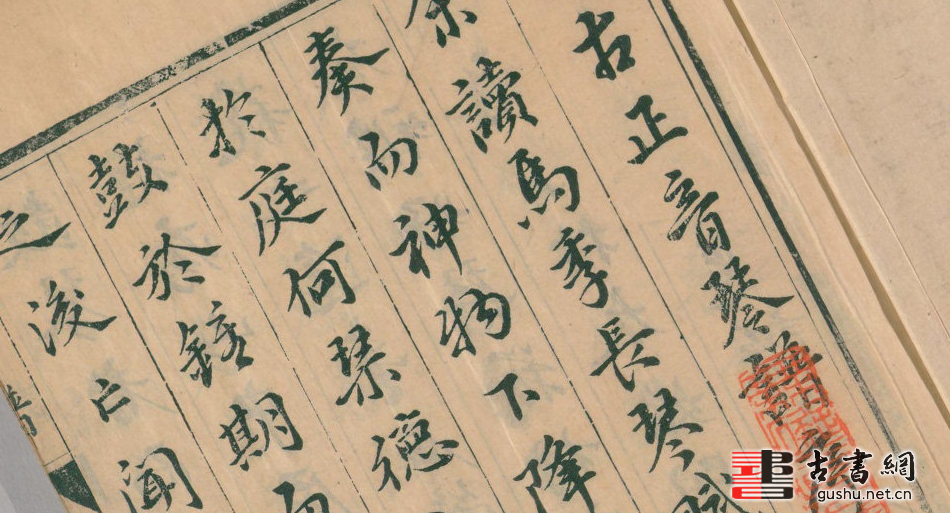 古正音琴譜序
余讀馬季長琴賦
奏而神物下降
於庭何琴德
鼓於鍾期而
之後亡聞
古書網
gushu.net.cn